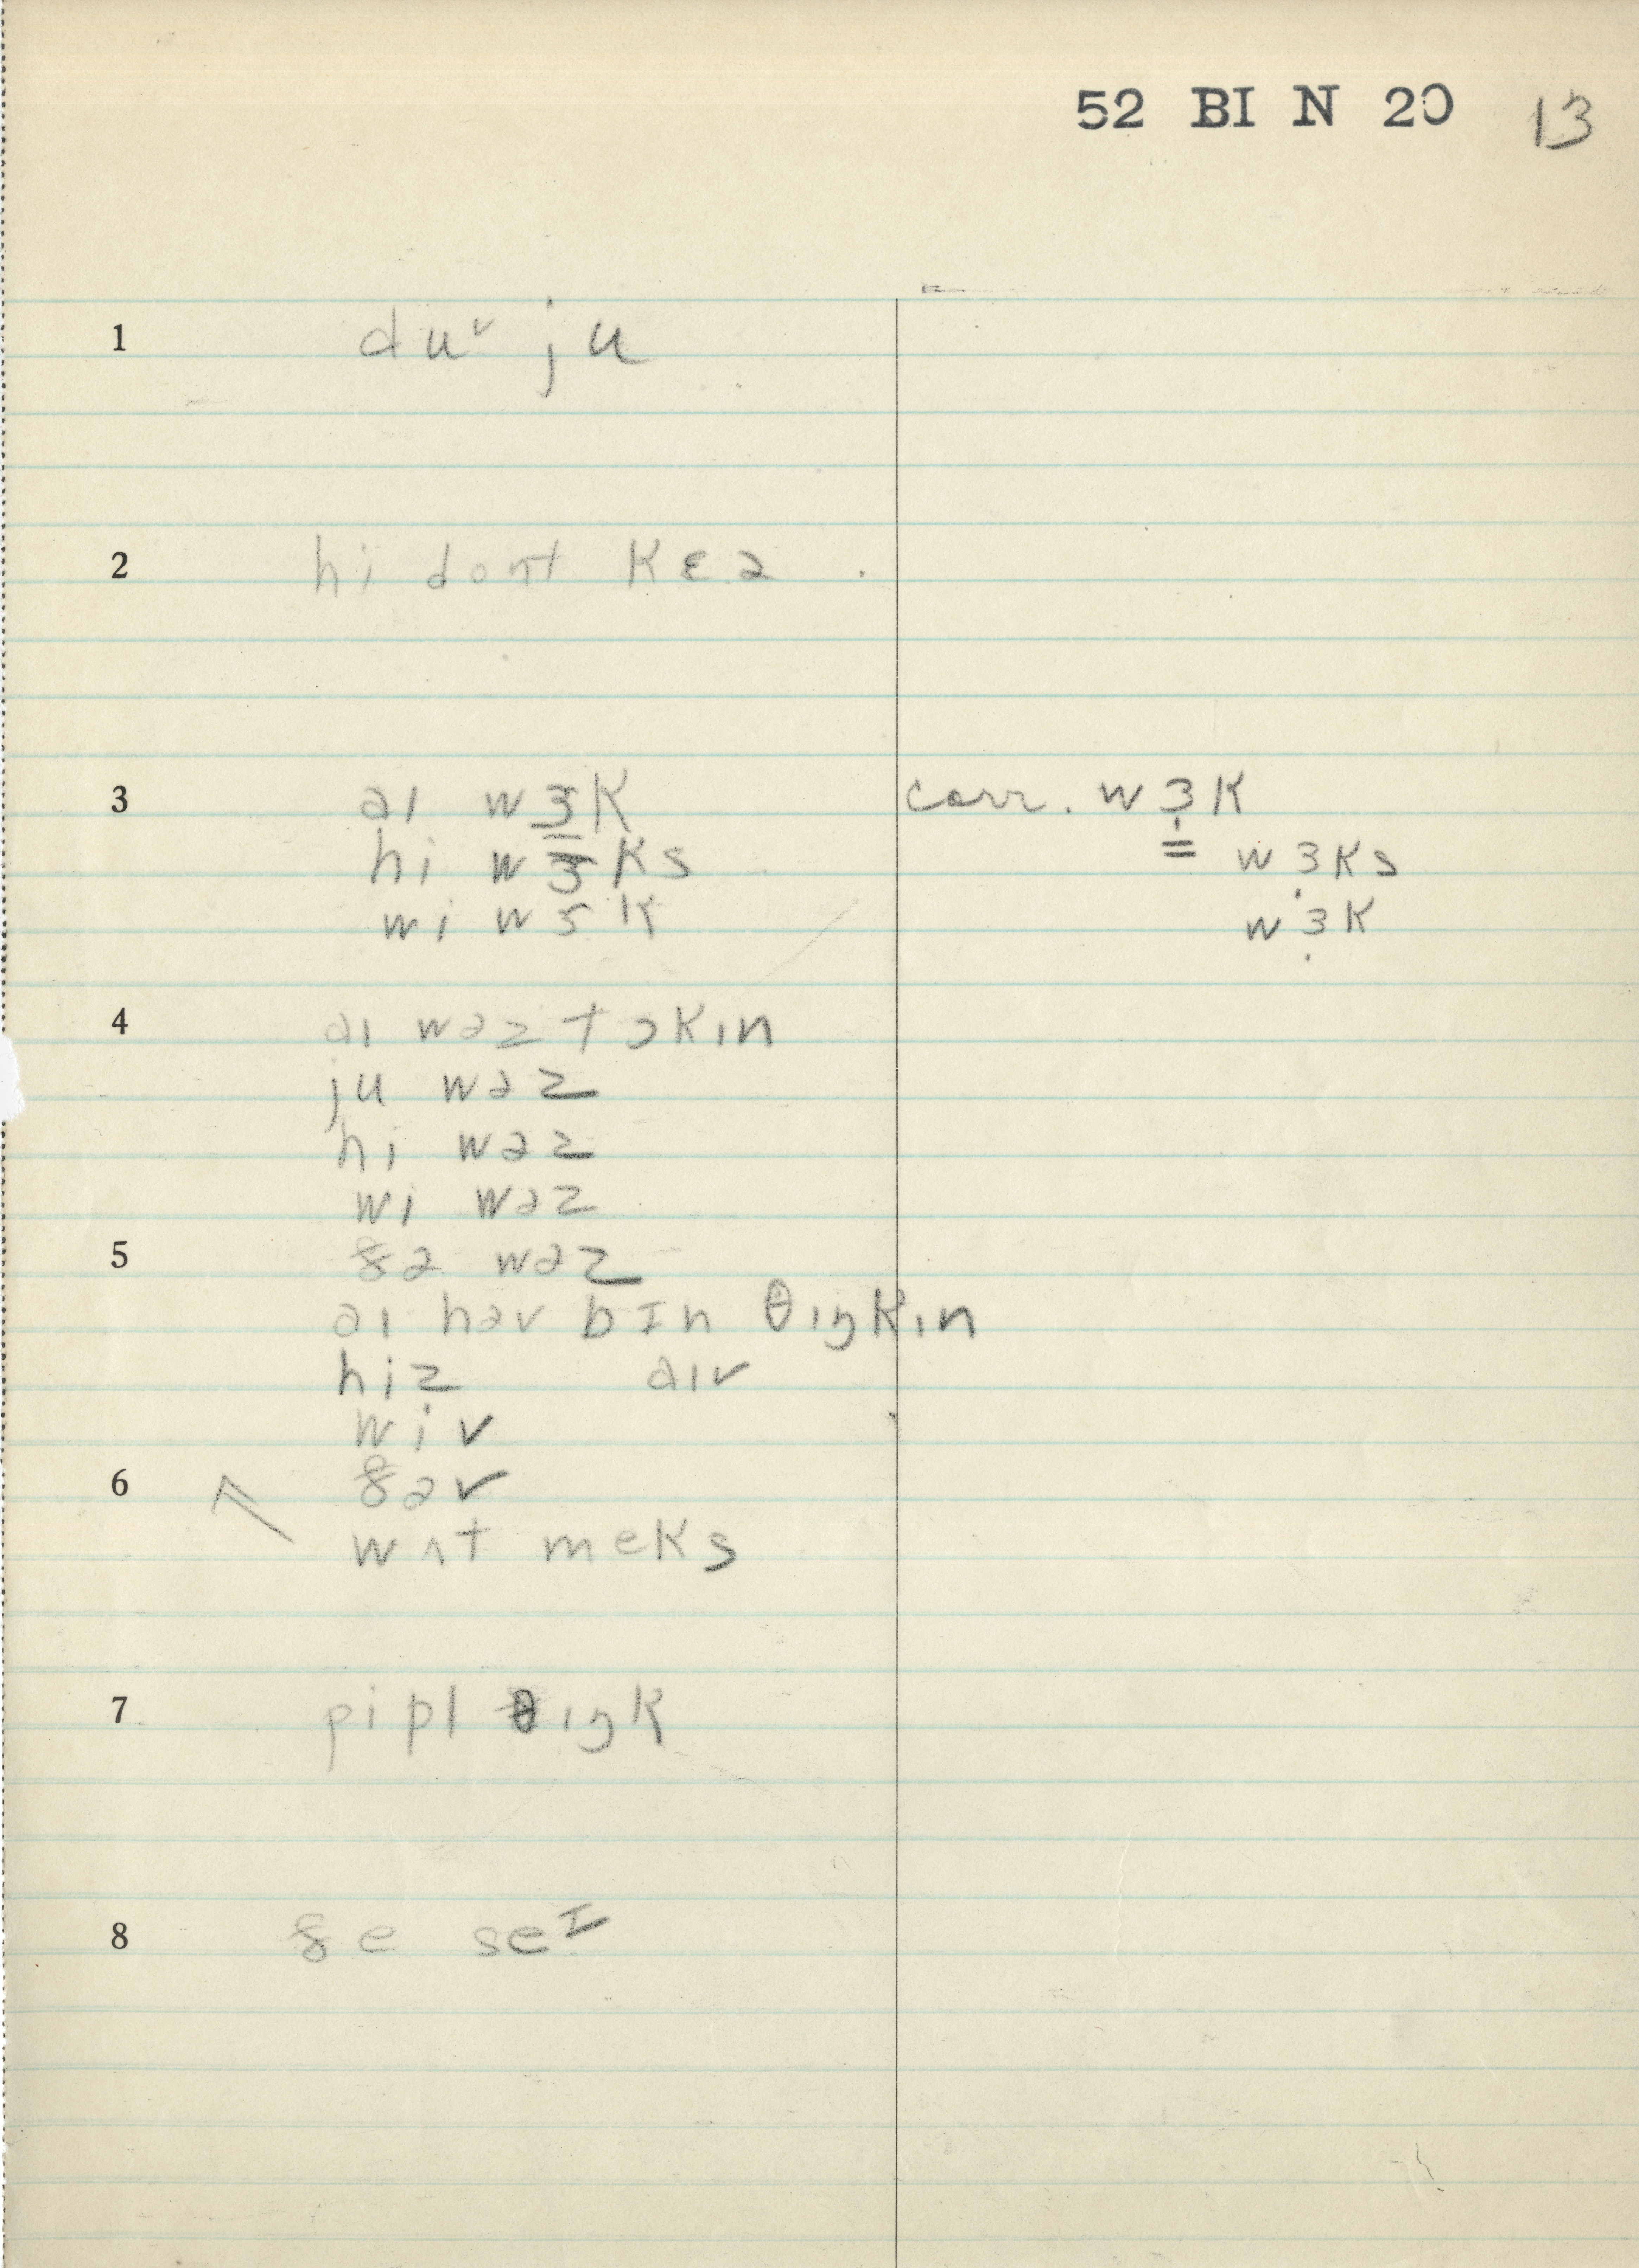 52 BI N 20 13
1 duᵛ ju
2 hi dont kɛə
3 aɪ wɜk corr. wɜ̣k
hi wɜks = wɜ̣ks
wi wɜk wɜ̣k
4 aɪ wəz tɔkɪn
ju wəz
hi wəz
wi wəz
5 ðə wəz
aɪ həv bɪn θɪŋkɪn
hiz aɪv
wiv
6 ðəv
wʌt meks
7 pipl θɪŋk
8 ðe seᶦ